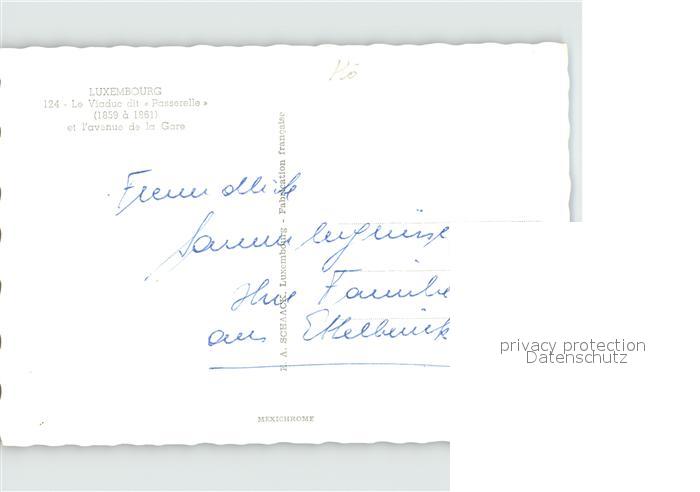 Hö
LUXEMBOURG
124 - Le Viaduc dit « Passerelle »
(1859 à 1861)
et l'avenue de la Gare
E. A. SCHAACK, Luxembourg - Fabrication française
Freundliche
Sammlergrüsse
Ihre Familie
aus Ettelbrück
MEXICHROME
privacy protection
Datenschutz